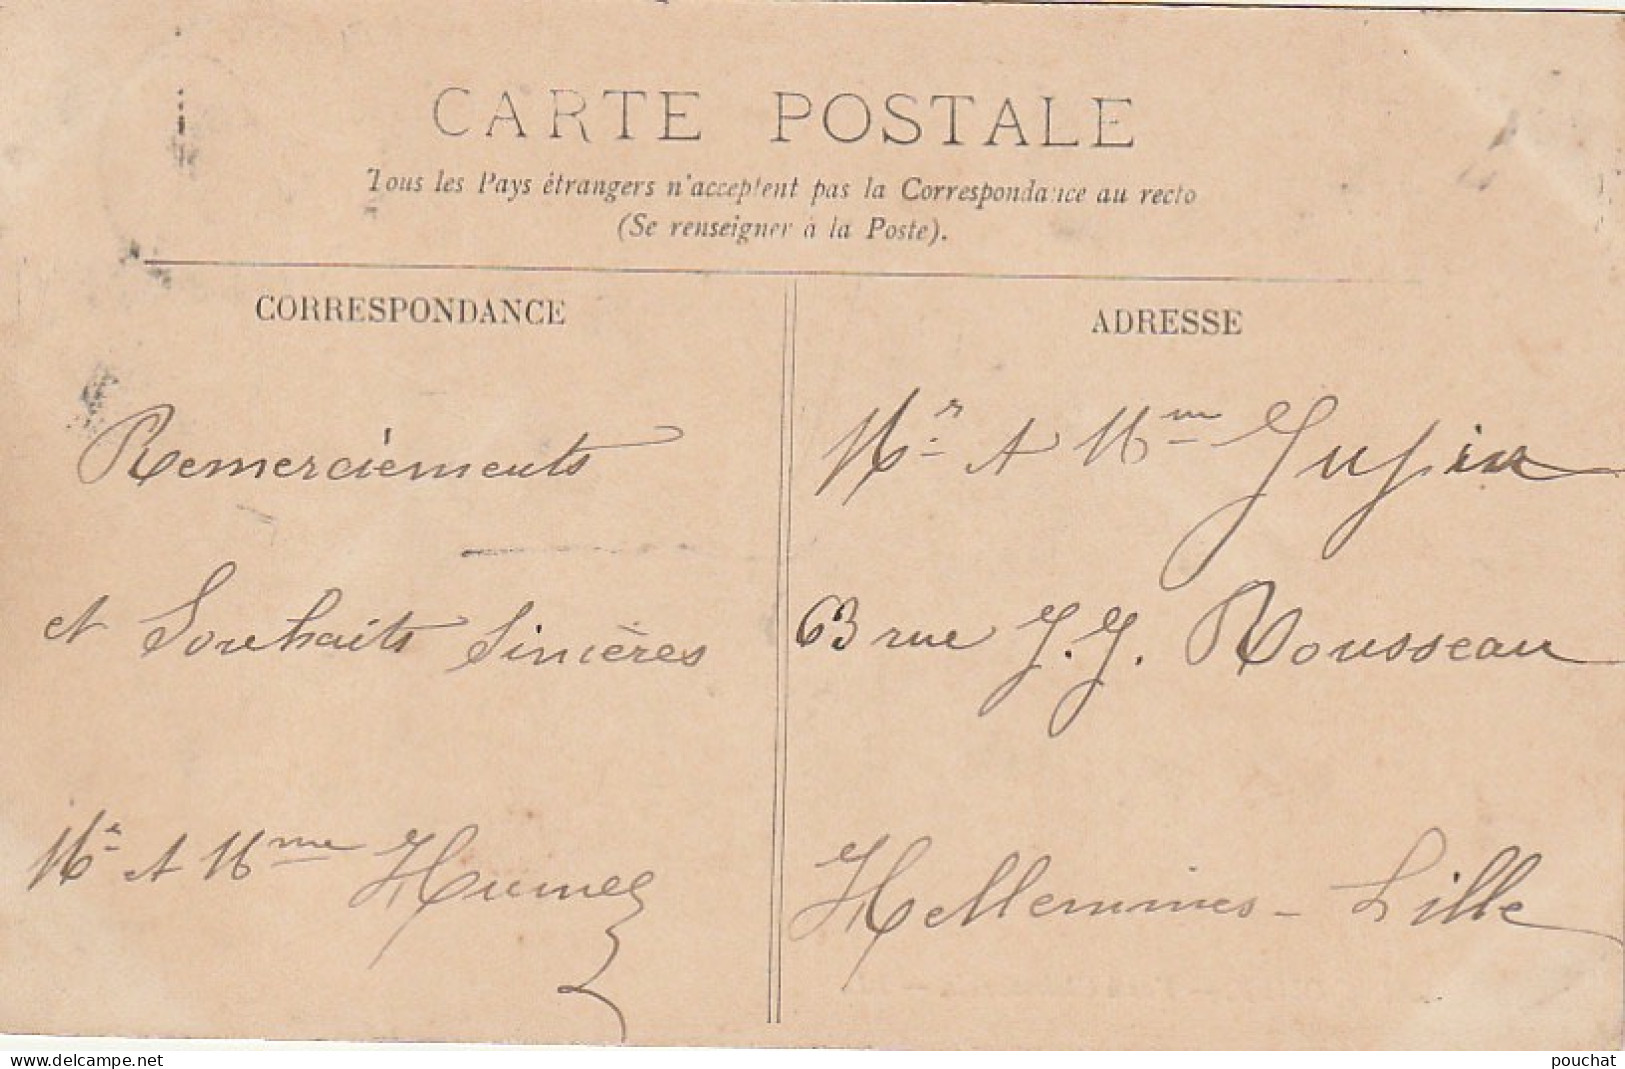 CARTE POSTALE
Tous les Pays étrangers n'acceptent pas la Correspondance au recto
(Se renseigner à la Poste).
CORRESPONDANCE
Remerciements
et Souhaits Sincères
Mr et Mme Humez
ADRESSE
Mr et Mme Jupin
63 rue J. J. Rousseau
Hellemmes - Lille
www.delcampe.net
pouchat